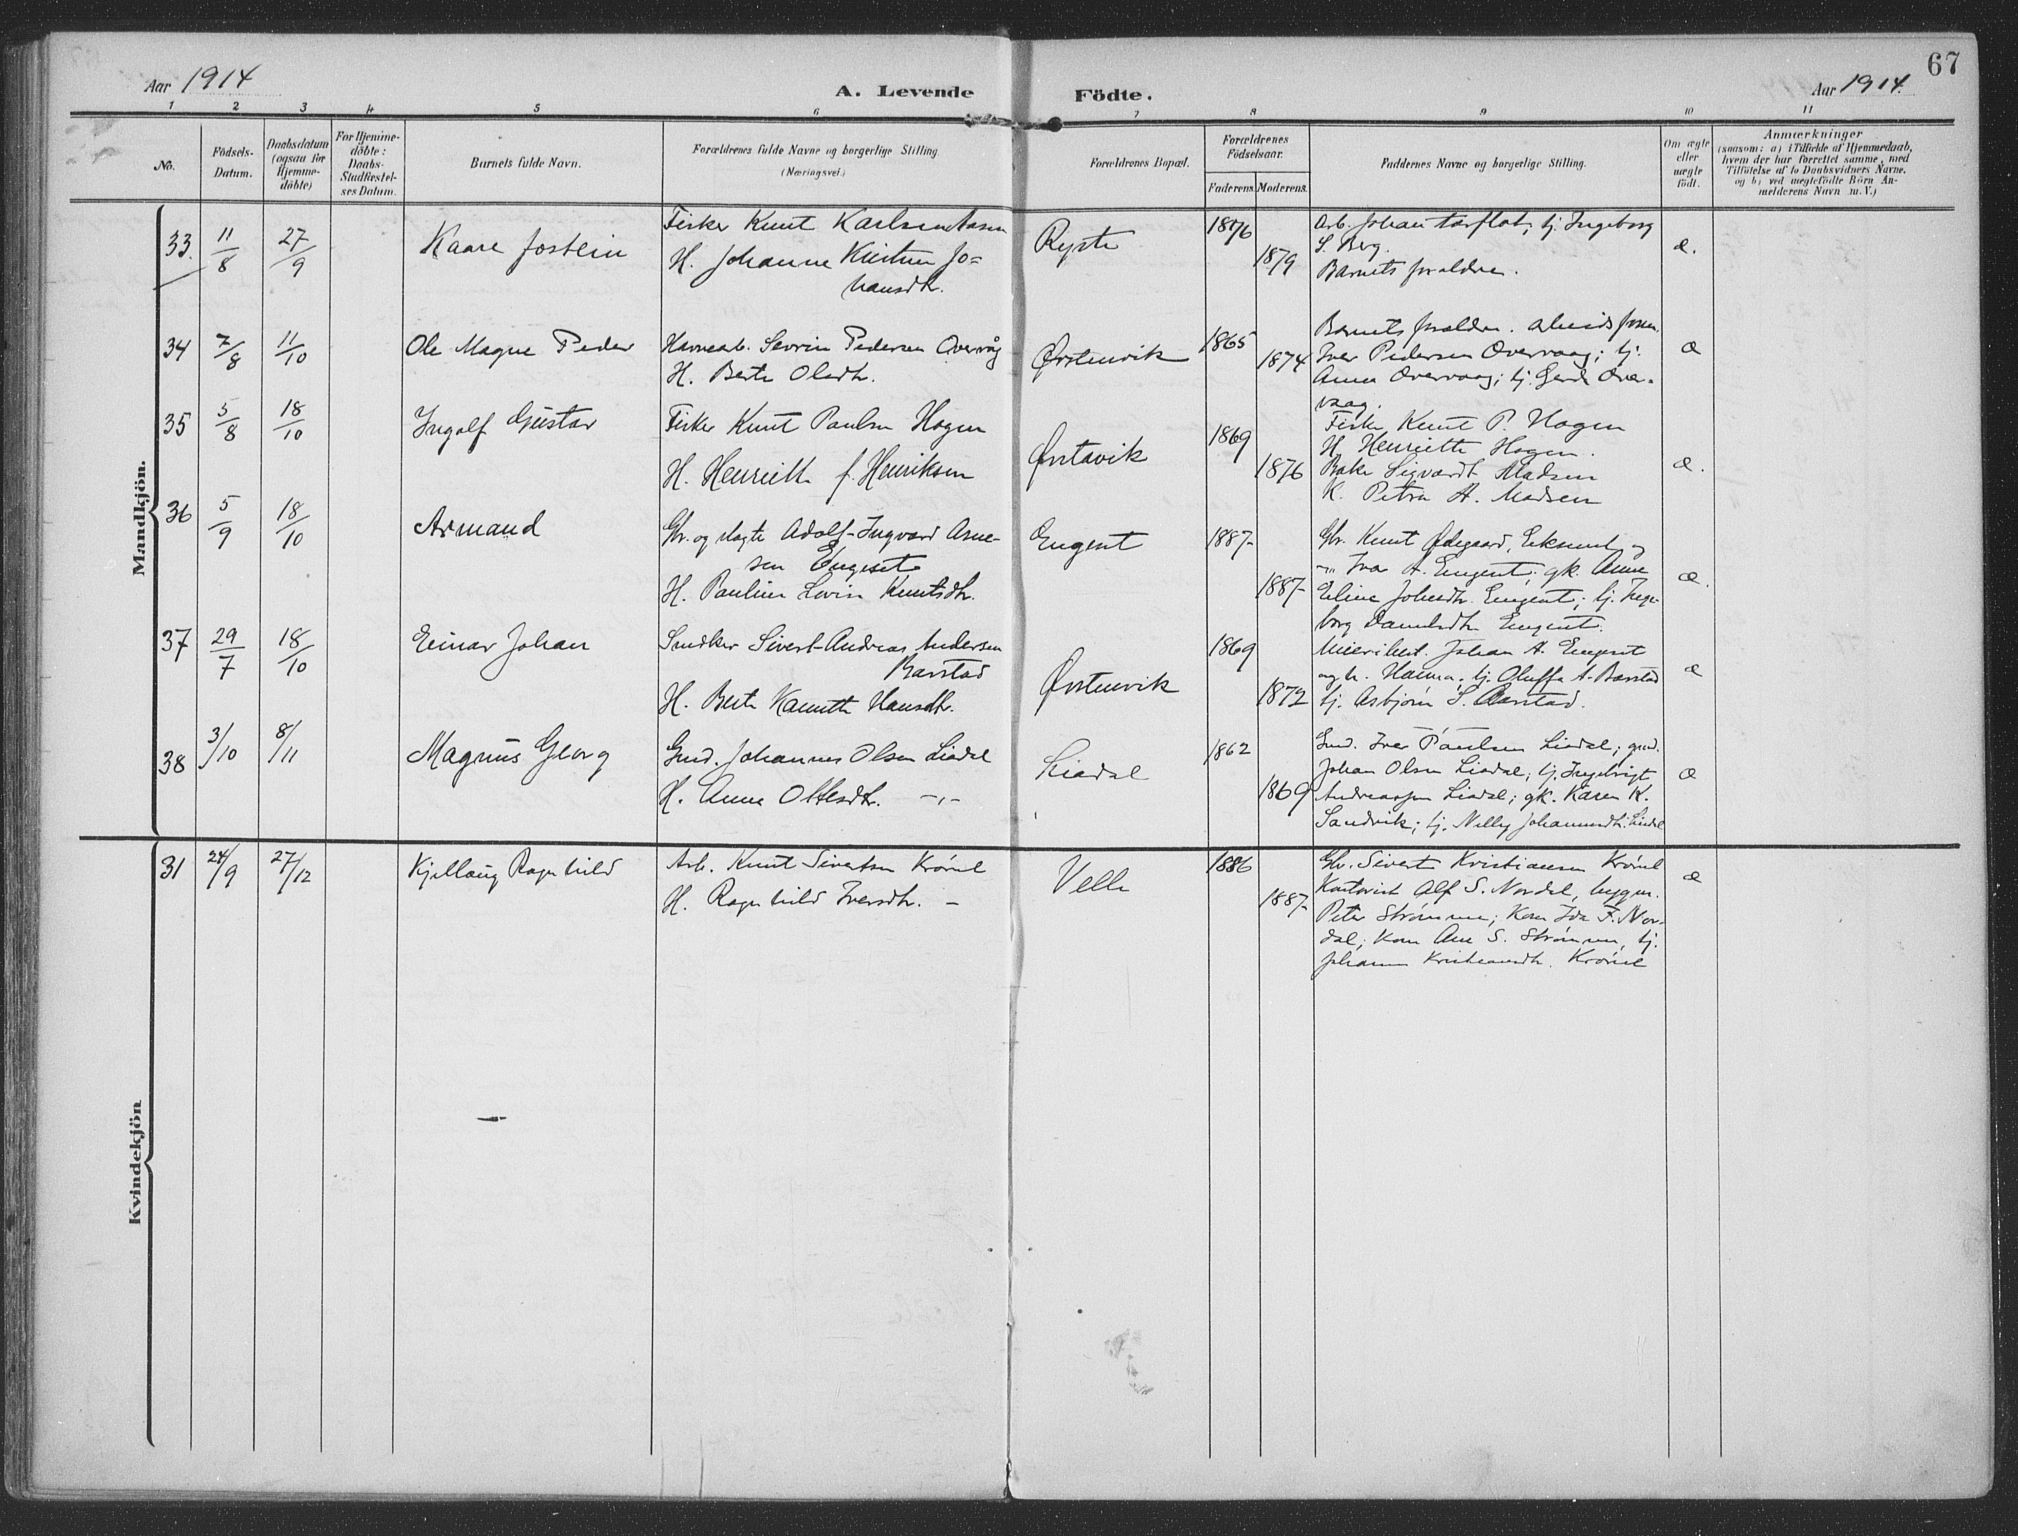 67
Aar 1914
A. Levende
Födte.
Aar 1914.
1 2 3 4 5 6 7 8 9 10 11
No.
Födsels-
Datum.
Daabsdatum
(ogsaa for
Hjemme-
döbte)
For Hjemme-
döbte:
Daabs-
Stadfæstel-
ses Datum.
Barnets fulde Navn.
Forældrenes fulde Navne og borgerlige Stilling.
(Næringsvei.)
Forældrenes Bopæl.
Forældrenes
Födselsaar.
Faderens.
Moderens.
Faddernes Navne og borgerlige Stilling.
Om ægte
eller
uægte
födt.
Anmærkninger
(saasom: a) i Tilfælde af Hjemmedaab,
hvem der har forrettet samme, med
Tilföielse af to Daabsvidners Navne,
og b) ved uægtefödte Börn An-
melderens Navn m. V.)
Mandkjön.
33.
11/8
27/9
Kaare Jostein
Fisker Knut Karlsen Aasen
H. Johanne Kristine Jo-
hansdtr.
Ryste
1876
1879
Arb. Johan Aarflot, tj. Ingeborg
S. Berg.
Barnets forældre.
æ.
34
7/8
11/10
Ole Magne Peder
Havnearb. Sevrin Pedersen Overvåg
H. Berte Olsdtr.
Ørstenvik
1865
1874
Barnets forældre. arbeidsform.
Iver Pedersen Overvaag; tj.
Anna Overvaag; tj. Gerda Over-
vaag.
æ
35
5/8
18/10
Ingolf Gustav
Fisker Knut Paulsen Hagen
H. Henriette f. Henriksen
Ørstavik
1869
1876
Fisker Knut P. Hagen
H. Henriette Hagen.
Baker Sigvardt Madsen
K. Petra A. Madsen
æ.
36
5/9
18/10
Armand
Gbr. og slagte Adolf-Ingvard Arne-
sen Engeset
H. Pauline Lovise Knutsdtr.
Engeset
1887-
1887-
Gbr. Knut Ødegaard, Eksund og
-"- Ivar A. Engeset; gk. Anne
Eline Johsdtr. Engeset; tj. Inge-
borg Danielsdtr. Engeset.
æ.
37
29/7
18/10
Einar Johan
Snedker Sivert-Andreas Andersen
Barstad
H. Berte Kanutte Hansdtr.
Ørstenvik
1869
1872
Meieribest. Johan A. Engeset
og h. Hanna; tj. Oluffa A. Barstad
tj. Asbjørn S. Barstad.
æ
38
3/10
8/11
Magnus Georg
Gmd. Johannes Olsen Liadal
H. Anne Ottesdtr. -"-
Liadal
1862
1869
Gmd. Iver Paulsen Liadal; gmd.
Johan Olsen Liadal; tj. Ingebrigt
Andreassen Liadal; gk. Karen K.
Sandvik; tj. Nelly Johannesdtr. Liadal
æ
Kvindekjön
31
24/9
27/12
Kjellaug Ragnhild
Arb. Knut Sivertsen Krøvel
H. Ragnhild Iversdtr. -
Velle
1886
1887-
Gbr. Sivert Kristiansen Krøvel
Kontorist Alf S. Nordal, byggm.
Peter Strømmen; Kone Ida F. Nor-
dal; kone Ane S. Strømmen, tj.
Johanne Kristiansdtr. Krøvel
æ